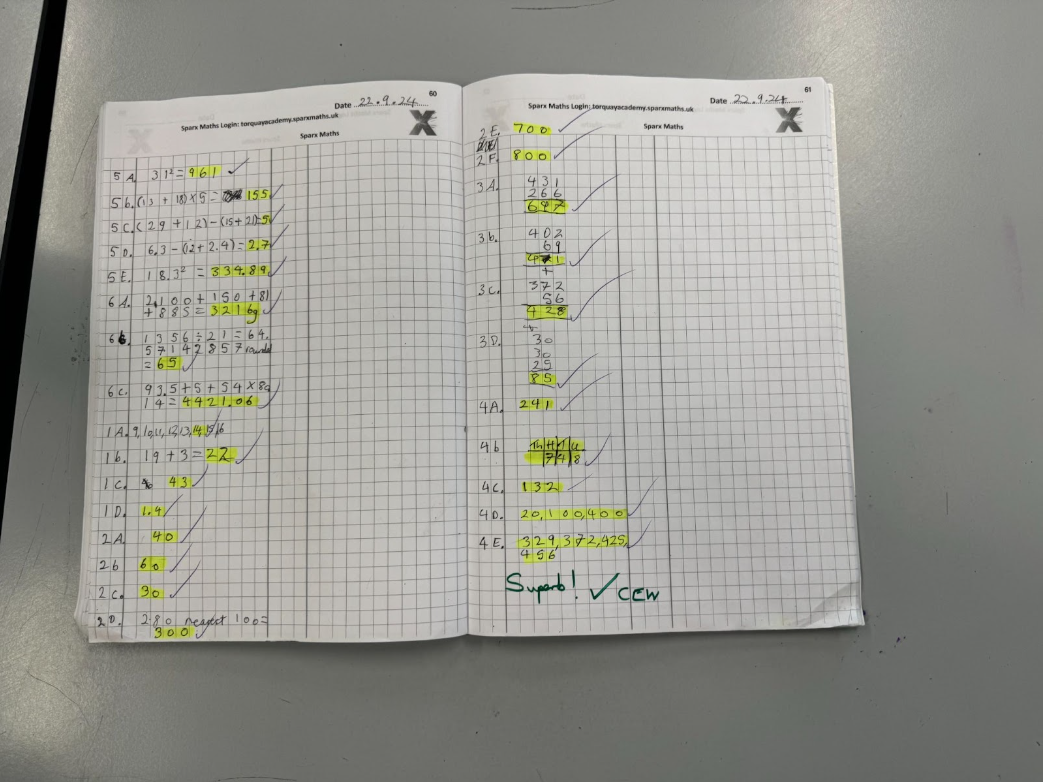 60
Date 22.9.24
Sparx Maths Login: torquayacademy.sparxmaths.uk
Sparx Maths
5 A. 31² = 961
5 b. (13 + 18) × 5 = 155
5 C. (29 + 12) - (15 + 21) = 5
5 D. 6.3 - (1.2 + 2.4) = 2.7
5 E. 18.3² = 334.89
6 A. 2100 + 150 + 81
+ 885 = 3216g
6 b. 1356 ÷ 21 = 64.
57142857 rounded
= 65
6 C. 93.5 + 5 + 54 × 89
14 = 4421.06
1 A. 9, 10, 11, 12, 13, 14, 15, 16
1 b. 19 + 3 = 22
1 C. 43
1 D. 1.4
2 A. 40
2 b 60
2 C. 30
2 D. 280 nearest 100 =
300
61
Date 22.9.24
Sparx Maths Login: torquayacademy.sparxmaths.uk
Sparx Maths
2 E. 700
2 F. 800
3 A. 431
266
697
3 b. 402
69
471
+
3 C. 372
56
428
+
3 D. 30
30
25
85
4 A. 241
4 b Th H T U
7 4 8
4 C. 132
4 D. 20, 100, 400
4 E. 329, 372, 425,
456
Superb! ✓ CEW